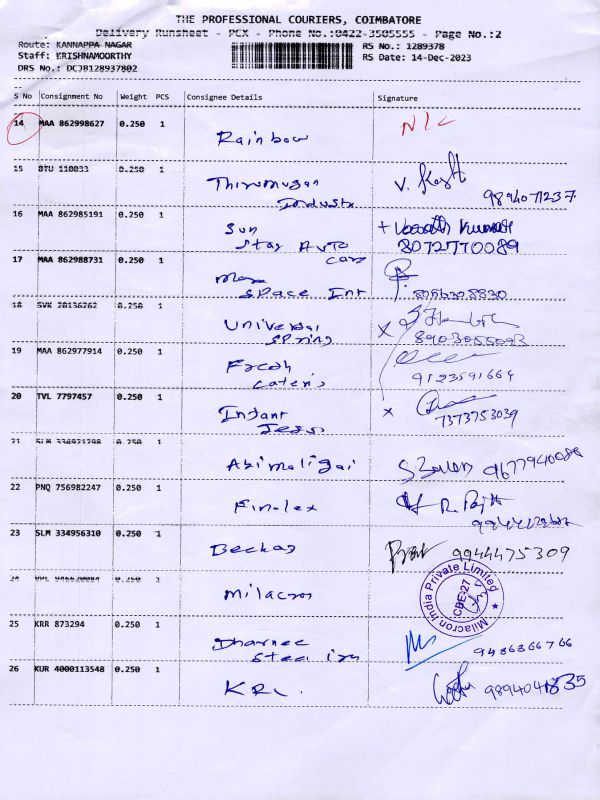 THE PROFESSIONAL COURIERS, COIMBATORE
Delivery Runsheet - PCX - Phone No.:0422-3505555 - Page No.:2
Route: KANNAPPA NAGAR RS No.: 1289378
Staff: KRISHNAMOORTHY RS Date: 14-Dec-2023
DRS No.: DCJB128937802
S No Consignment No Weight PCS Consignee Details Signature
14 MAA 862998627 0.250 1 Rainbow N/C
15 BTU 110033 0.250 1 Thirumugan
Industx 9894071237
16 MAA 862985191 0.250 1 Sun
Star Auto 8072770089
care
17 MAA 862988731 0.250 1
Space Int 8056308830
18 SVK 20136262 0.250 1 Universal
Spring 8903055093
19 MAA 862977914 0.250 1 Fresh
Caters 9123591664
20 TVL 7797457 0.250 1 Infant
Jesus 7373753039
21 SLM 334921298 0.250 1 Abimaligai
22 PNQ 756982247 0.250 1 Finolex
23 SLM 334956310 0.250 1 Beckas 9944475309
24 0.250 1 Milacron
Milacron India Private Limited
CBE-27
25 KRR 873294 0.250 1 Dharnee
9486866766
26 KUR 4000113548 0.250 1 KRL